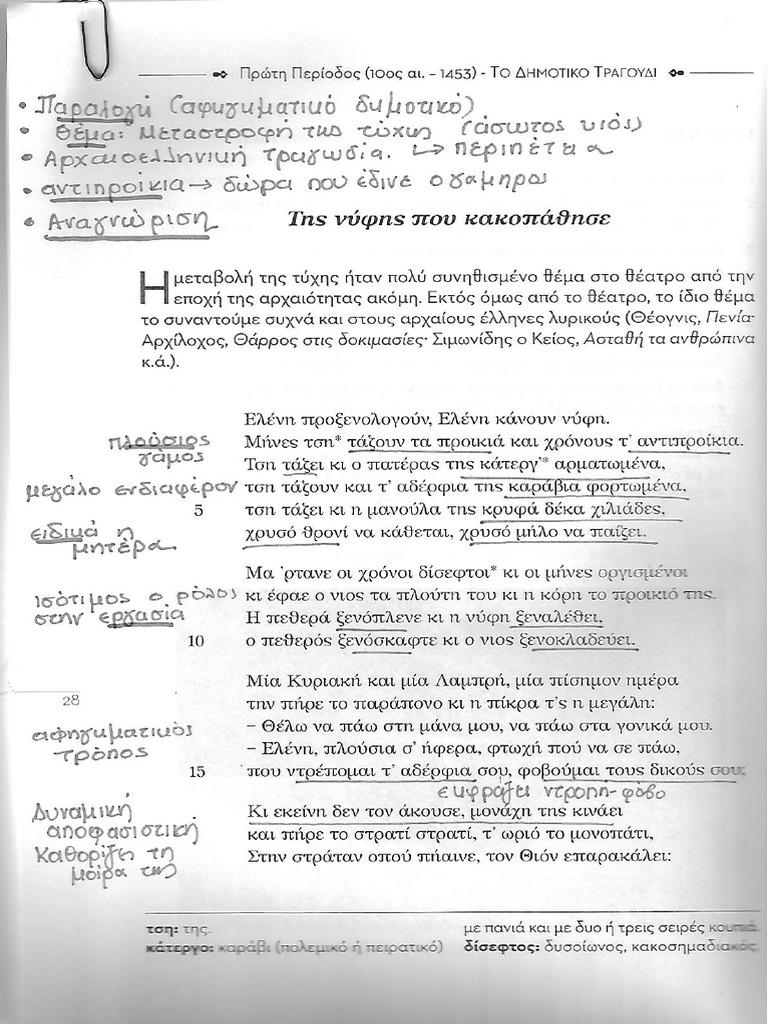 Πρώτη Περίοδος (10ος αι. – 1453) - Το Δημοτικό Τραγούδι
• Παραλογή (αφηγηματικό δημοτικό)
• Θέμα: Μεταστροφή της τύχης (άσωτος υιός)
• Αρχαιοελληνική τραγωδία. ↳ περιπέτεια
• αντιπροίκια → δώρα που έδινε ο γαμπρός
• Αναγνώριση
Της νύφης που κακοπάθησε
Η μεταβολή της τύχης ήταν πολύ συνηθισμένο θέμα στο θέατρο από την
εποχή της αρχαιότητας ακόμη. Εκτός όμως από το θέατρο, το ίδιο θέμα
το συναντούμε συχνά και στους αρχαίους έλληνες λυρικούς (Θέογνις, Πενία·
Αρχίλοχος, Θάρρος στις δοκιμασίες· Σιμωνίδης ο Κείος, Ασταθή τα ανθρώπινα
κ.ά.).
Ελένη προξενολογούν, Ελένη κάνουν νύφη.
πλούσιος Μήνες τση* τάζουν τα προικιά και χρόνους τ' αντιπροίκια.
γάμος Τση τάζει κι ο πατέρας της κάτεργ'* αρματωμένα,
μεγάλο ενδιαφέρον τση τάζουν και τ' αδέρφια της καράβια φορτωμένα,
5 τση τάζει κι η μανούλα της κρυφά δέκα χιλιάδες,
ειδικά η χρυσό θρονί να κάθεται, χρυσό μήλο να παίζει.
μητέρα
Μα 'ρτανε οι χρόνοι δίσεφτοι* κι οι μήνες οργισμένοι
ισότιμος ο ρόλος κι έφαε ο νιος τα πλούτη του κι η κόρη το προικιό της.
στην εργασία Η πεθερά ξενόπλενε κι η νύφη ξεναλέθει,
10 ο πεθερός ξενόσκαφτε κι ο νιος ξενοκλαδεύει.
Μία Κυριακή και μία Λαμπρή, μία πίσημον ημέρα
28 την πήρε το παράπονο κι η πίκρα τ's η μεγάλη:
αφηγηματικός – Θέλω να πάω στη μάνα μου, να πάω στα γονικά μου.
τρόπος – Ελένη, πλούσια σ' ήφερα, φτωχή πού να σε πάω,
15 που ντρέπομαι τ' αδέρφια σου, φοβούμαι τους δικούς σου;
εκφράζει ντροπή-φόβο
Δυναμική Κι εκείνη δεν τον άκουσε, μονάχη της κινάει
αποφασιστική και πήρε το στρατί στρατί, τ' ωριό το μονοπάτι,
Καθορίζει τη Στην στράταν οπού πήαινε, τον Θιόν επαρακάλει:
μοίρα της
τση: της.
κάτεργο: καράβι (πολεμικό ή πειρατικό)
με πανιά και με δυο ή τρεις σειρές κουπιά.
δίσεφτος: δυσοίωνος, κακοσημαδιακός.